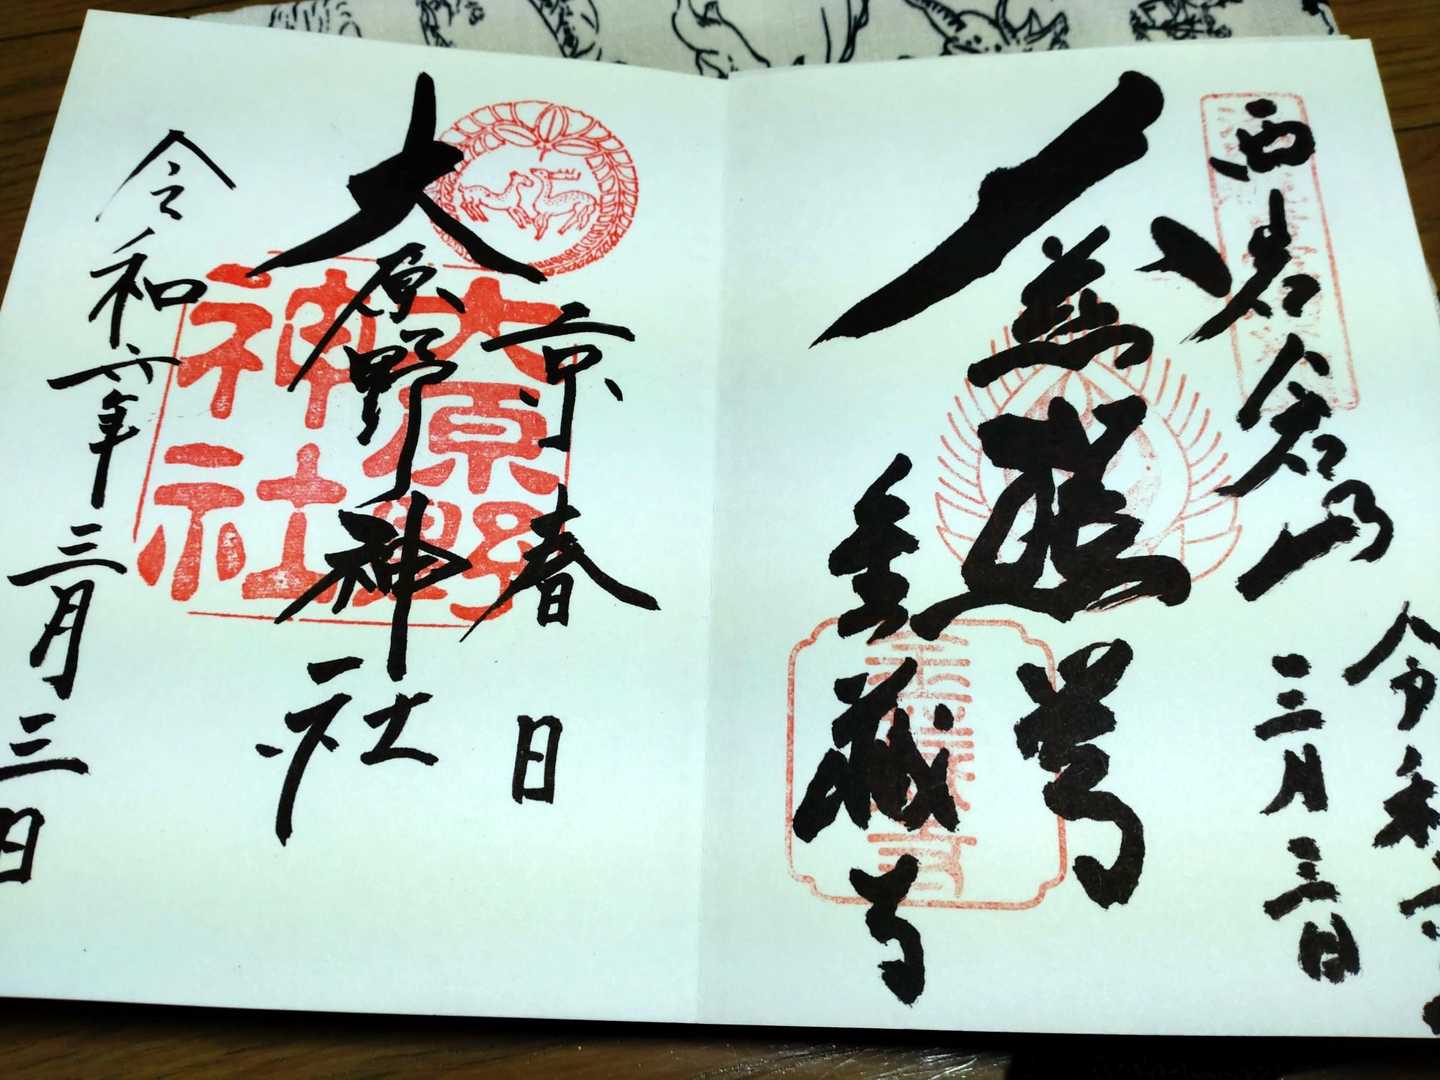 西岩倉山
令和
三月三日
金蔵寺
京春日
大原野神社
大原野
神社
令和六年三月三日